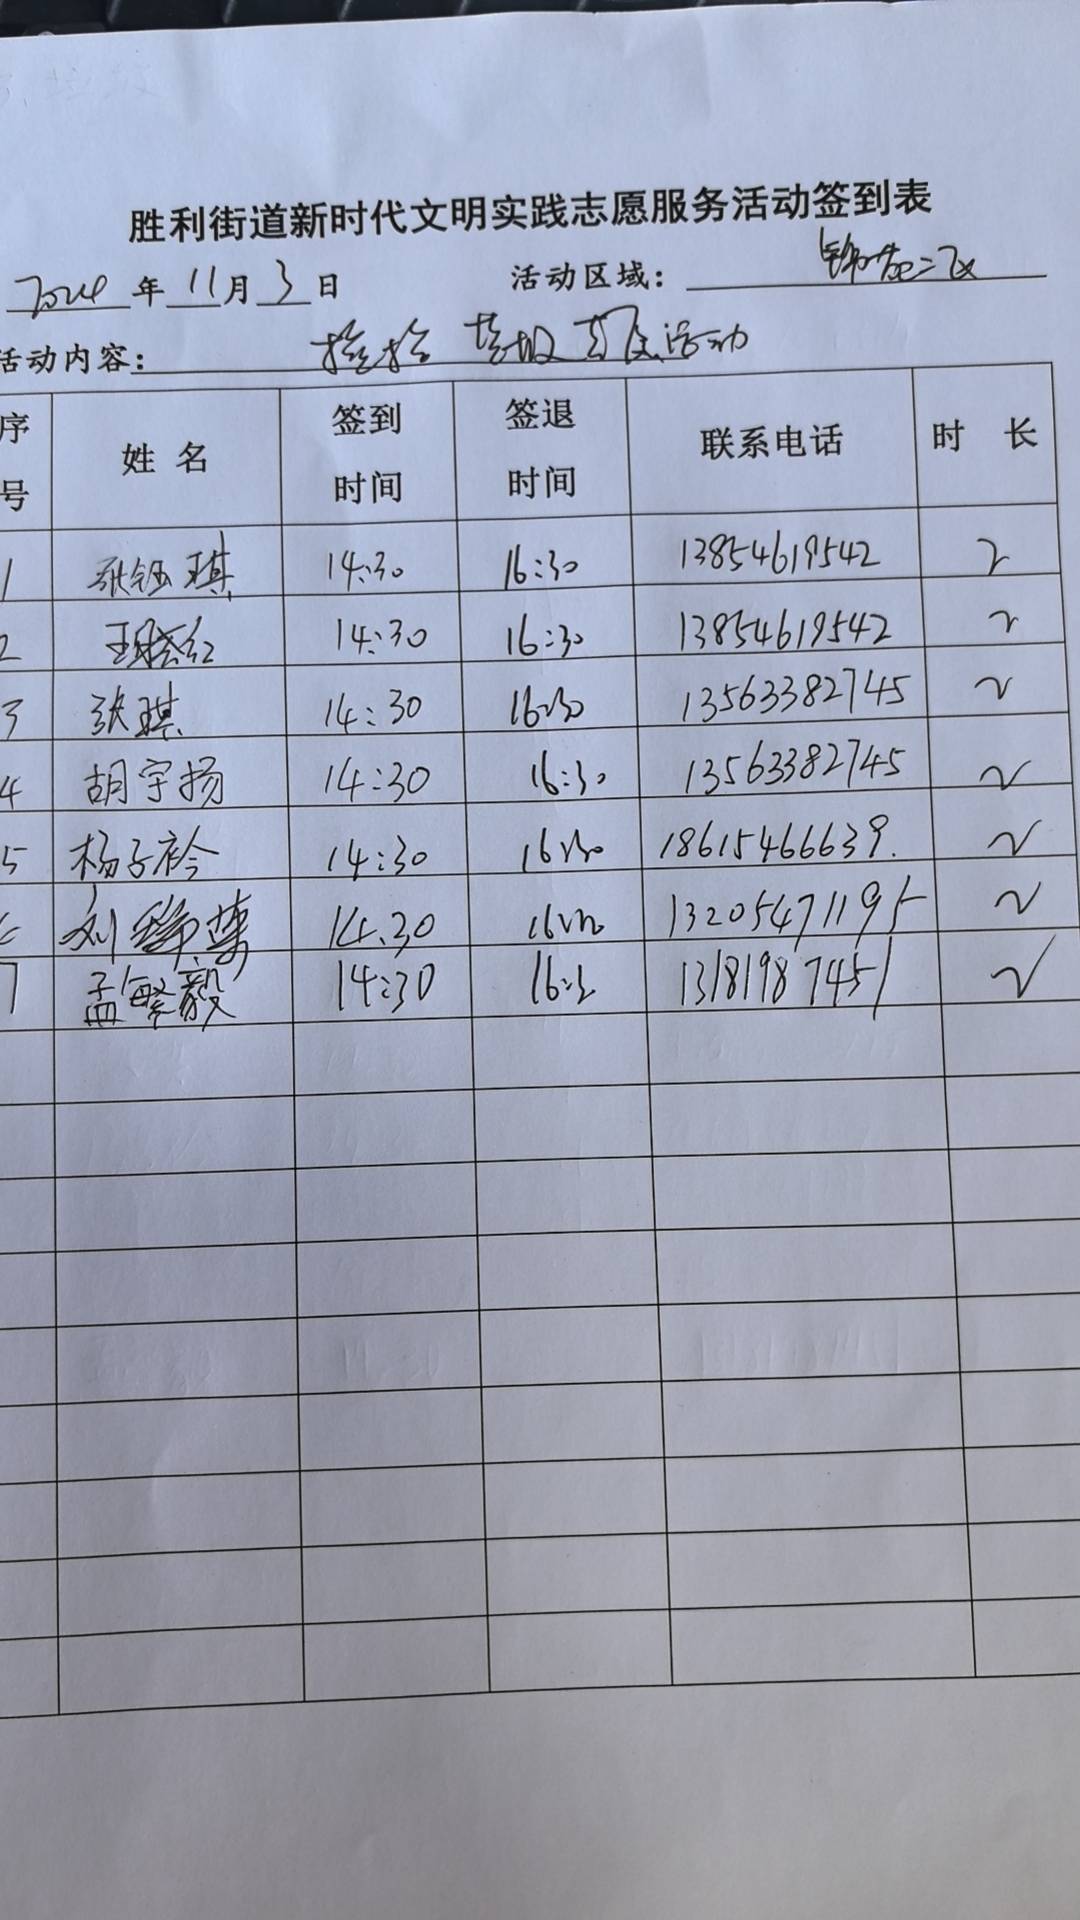 胜利街道新时代文明实践志愿服务活动签到表
2024年11月3日 活动区域：锦苑二区
活动内容：捡拾垃圾 活动
序号 姓名 签到时间 签退时间 联系电话 时长
1 张钰琪 14:30 16:30 13854619542 2
2 王晓红 14:30 16:30 13854619542 2
3 张琪 14:30 16:30 13563382745 2
4 胡宇扬 14:30 16:30 13563382745 2
5 杨子衿 14:30 16:30 18615466639. 2
6 刘 14:30 16:30 13205471195 2
7 孟繁毅 14:30 16:3 13181987451 2